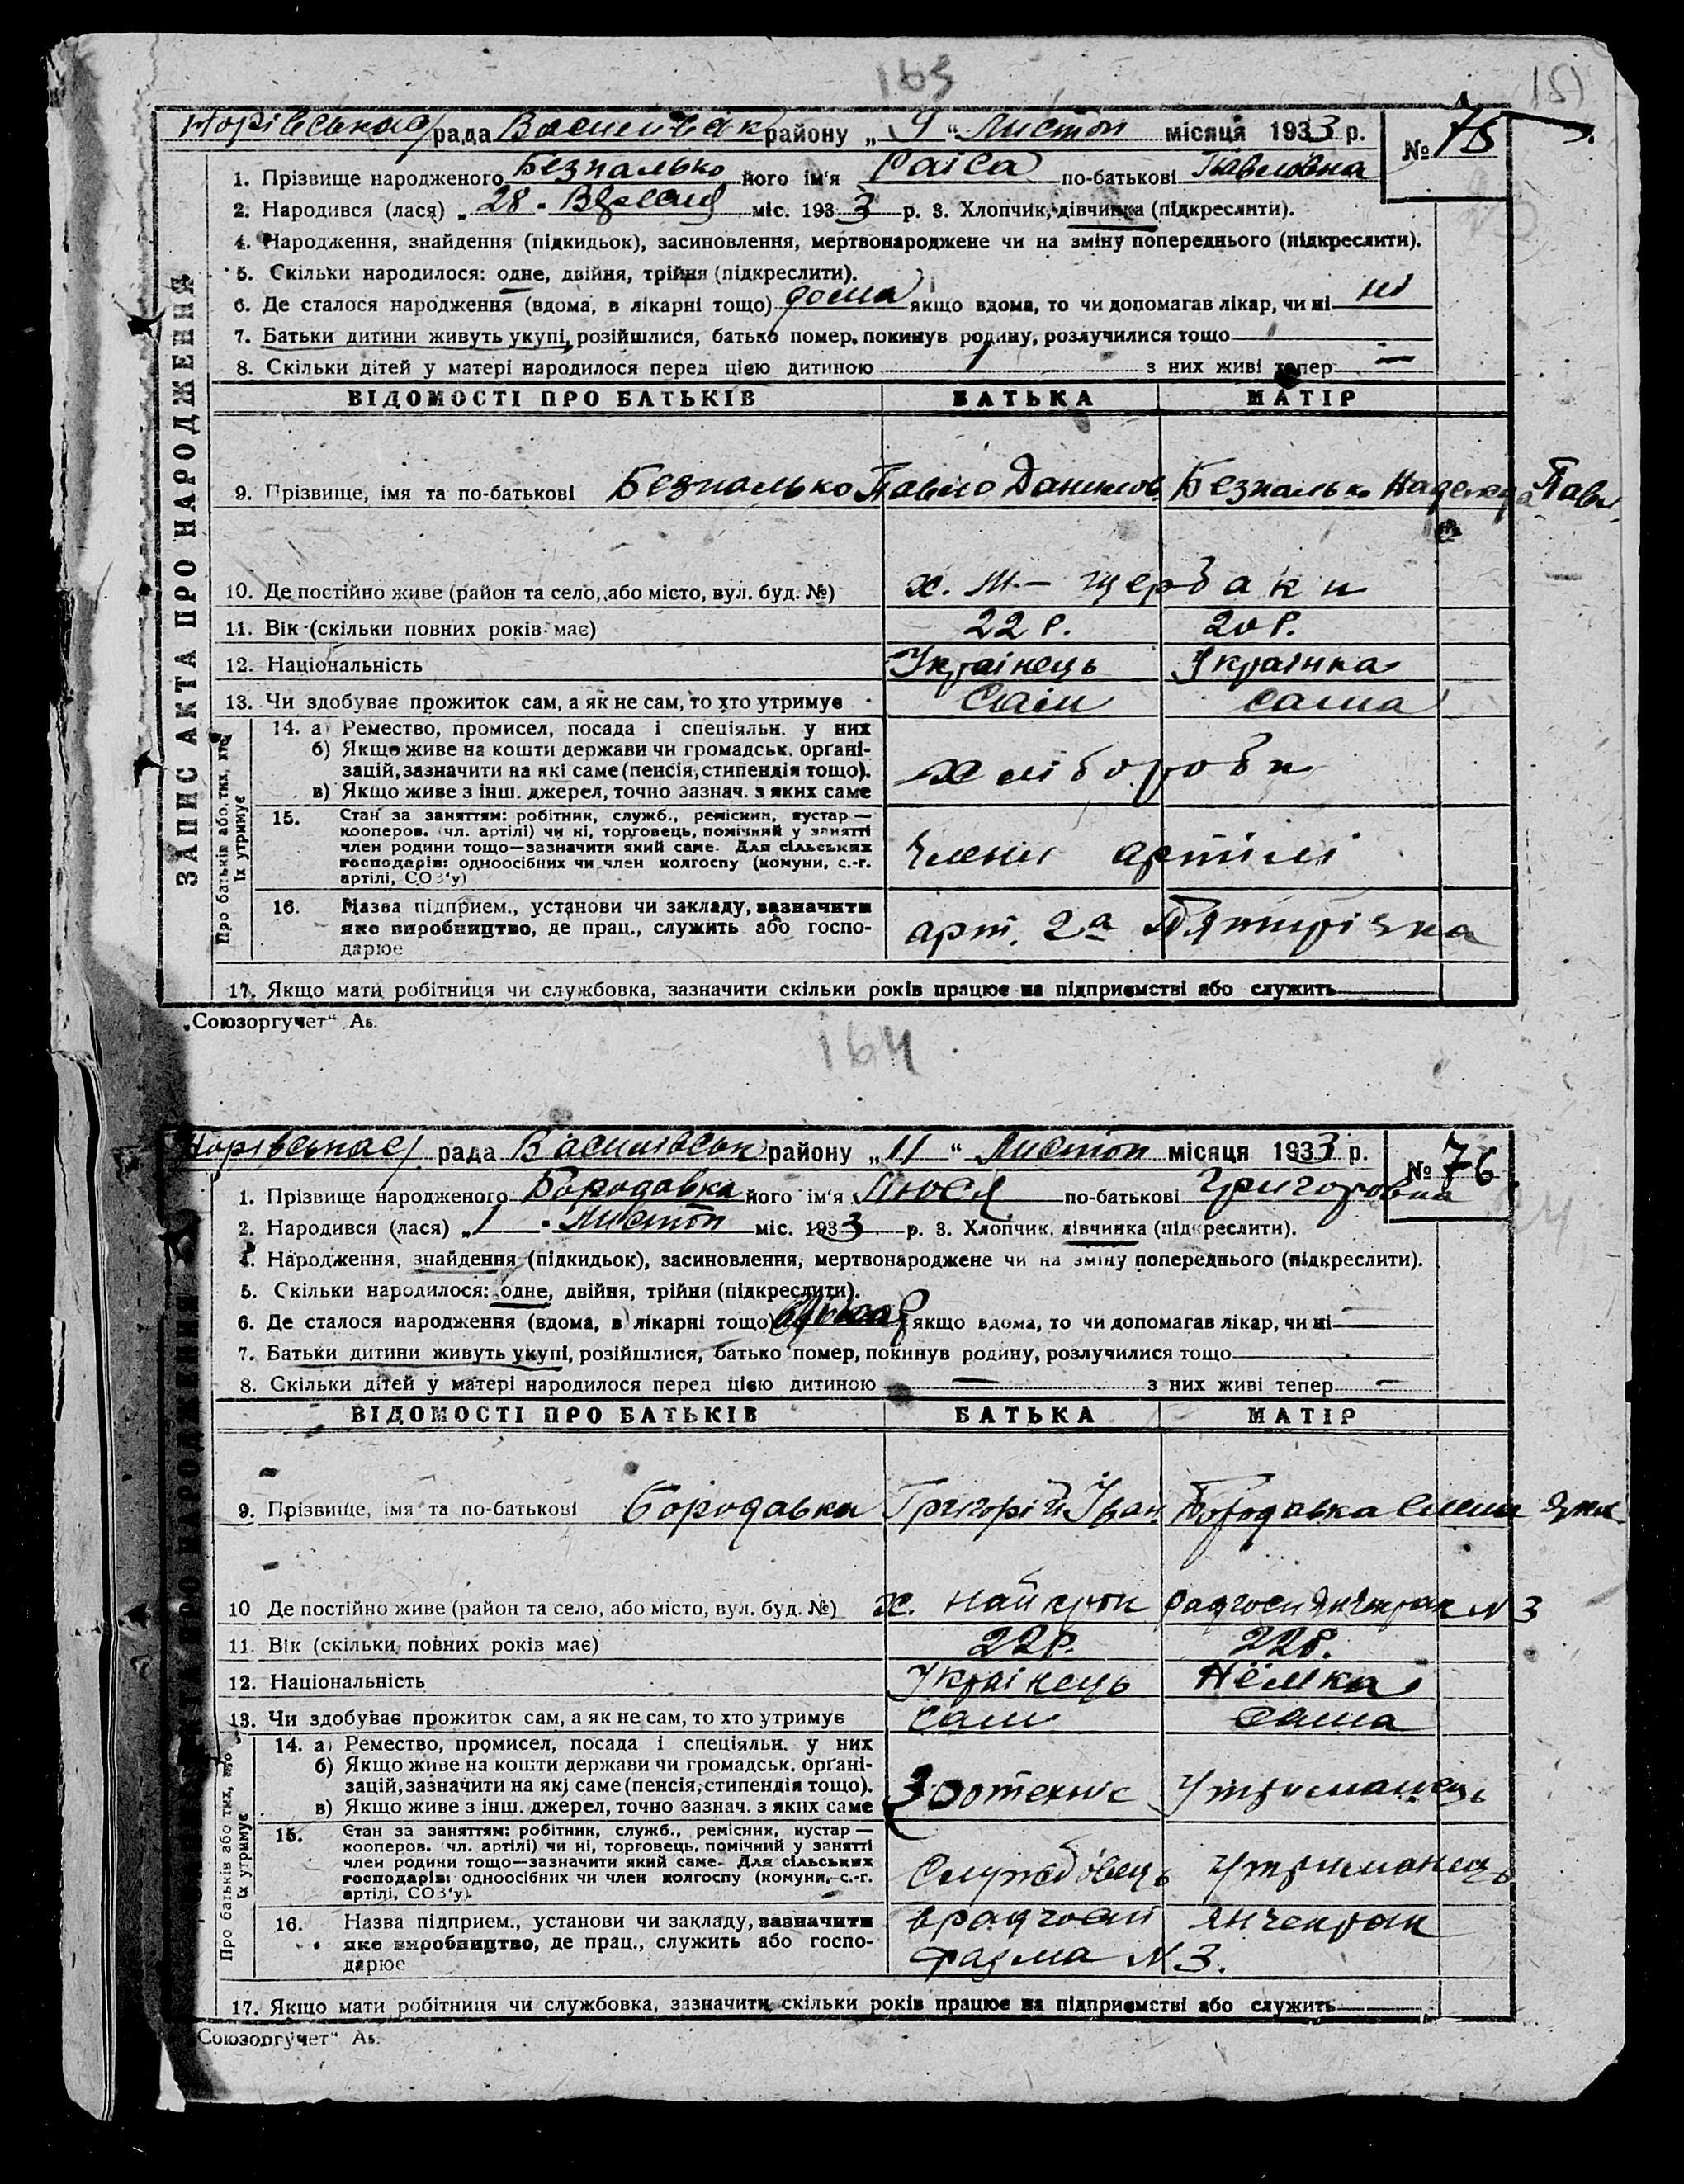 163
151
рада Василівськ району „ 9 “ Листоп місяця 1933 р. № 75
1. Прізвище народженого Безпалько його ім'я Раїса по-батькові Павловна
2. Народився (лася) „ 28 „ Вересня міс. 1933 р. 3. Хлопчик, дівчинка (підкреслити).
4. Народження, знайдення (підкидьок), засиновлення, мертвонароджене чи на зміну попереднього (підкреслити).
5. Скільки народилося: одне, двійня, трійня (підкреслити).
6. Де сталося народження (вдома, в лікарні тощо) дома якщо вдома, то чи допомагав лікар, чи ні ні
7. Батьки дитини живуть укупі, розійшлися, батько помер, покинув родину, розлучилися тощо
8. Скільки дітей у матері народилося перед цією дитиною 1 з них живі тепер —
ВІДОМОСТІ ПРО БАТЬКІВ БАТЬКА МАТІР
9. Прізвище, імя та по-батькові Безпалько Павло Данилов. Безпалько Надежда Павл.
10. Де постійно живе (район та село, або місто, вул. буд. №) х. М— Щербаки
11. Вік (скільки повних років має) 22 р. 20 р.
12. Національність Українець Українка
13. Чи здобуває прожиток сам, а як не сам, то хто утримує Сам сама
14. а) Ремество, промисел, посада і спеціяльн. у них
б) Якщо живе на кошти держави чи громадськ. орґані-
зацій, зазначити на які саме (пенсія, стипендія тощо).
в) Якщо живе з інш. джерел, точно зазнач. з яких саме
хлібороби
15. Стан за заняттям: робітник, служб., ремісник, кустар —
кооперов. (чл. артілі) чи ні, торговець, помічний у занятті
член родини тощо—зазначити який саме. Для сільських
господарів: одноосібних чи член колгоспу (комуни, с.-г.
артілі, СОЗ'у)
члени артілі
16. Назва підприєм., установи чи закладу, зазначити
яке виробництво, де прац., служить або госпо-
дарює
арт. 2а Пятирічка
17. Якщо мати робітниця чи службовка, зазначити скільки років працює на підприємстві або служить
ЗАПИС АКТА ПРО НАРОДЖЕННЯ
Про батьків або тих, хто
їх утримує
„Союзоргучет“ Ав.
164
рада Василівськ району „ 11 “ Листоп місяця 1933 р. № 76
1. Прізвище народженого Бородавка його ім'я Люся по-батькові Григоровна
2. Народився (лася) „ 1 „ Листоп міс. 1933 р. 3. Хлопчик, дівчинка (підкреслити).
4. Народження, знайдення (підкидьок), засиновлення, мертвонароджене чи на зміну попереднього (підкреслити).
5. Скільки народилося: одне, двійня, трійня (підкреслити).
6. Де сталося народження (вдома, в лікарні тощо) якщо вдома, то чи допомагав лікар, чи ні —
7. Батьки дитини живуть укупі, розійшлися, батько помер, покинув родину, розлучилися тощо
8. Скільки дітей у матері народилося перед цією дитиною — з них живі тепер —
ВІДОМОСТІ ПРО БАТЬКІВ БАТЬКА МАТІР
9. Прізвище, імя та по-батькові Бородавка Григорій Іван. Бородавка
10 Де постійно живе (район та село, або місто, вул. буд. №) х. радгосп Янчекрак N 3
11. Вік (скільки повних років має) 22р. 22р.
12. Національність Українець Нємка
13. Чи здобуває прожиток сам, а як не сам, то хто утримує сам сама
14. а) Ремество, промисел, посада і спеціяльн. у них
б) Якщо живе на кошти держави чи громадськ. орґані-
зацій, зазначити на які саме (пенсія, стипендія тощо).
в) Якщо живе з інш. джерел, точно зазнач. з яких саме
Зоотехнік Утриманець
15. Стан за заняттям: робітник, служб., ремісник, кустар —
кооперов. (чл. артілі) чи ні, торговець, помічний у занятті
член родини тощо—зазначити який саме. Для сільських
господарів: одноосібних чи член колгоспу (комуни, с.-г.
артілі, СОЗ'у).
Службовець Утриманець
16. Назва підприєм., установи чи закладу, зазначити
яке виробництво, де прац., служить або госпо-
дарює
в радгоспі Янчекрак
фарма N 3.
17. Якщо мати робітниця чи службовка, зазначити скільки років працює на підприємстві або служить
Про батьків або тих, хто
їх утримує
Союзоргучет“ Ав.